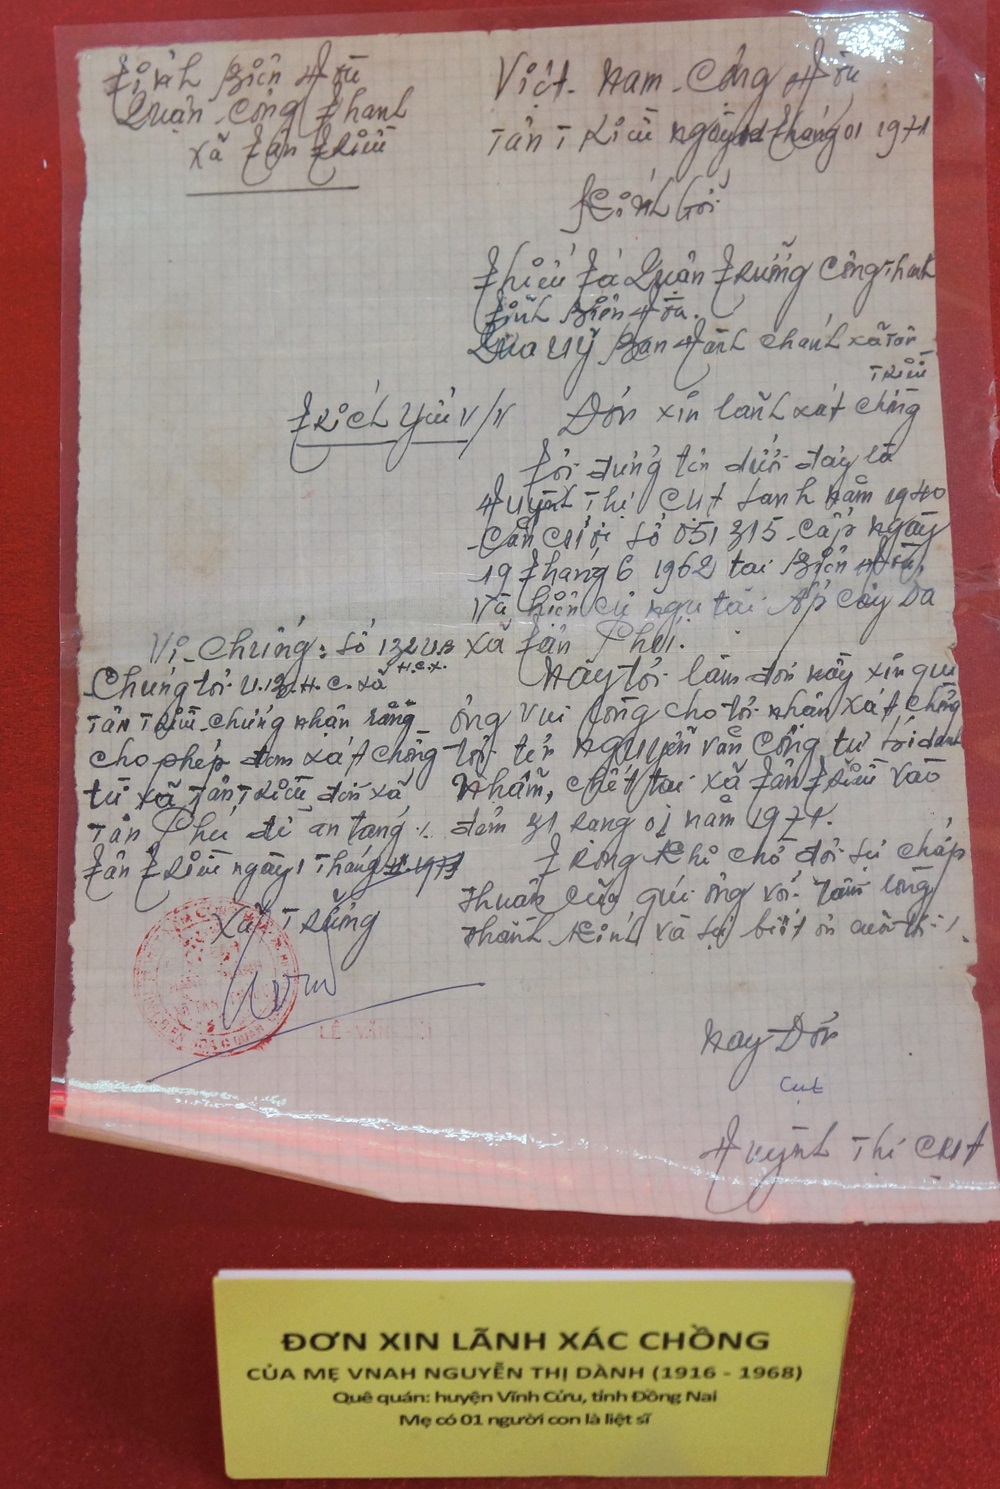 Tỉnh Biên Hòa
Quận Công Thanh
Xã Tân Triều
Việt Nam Cộng Hòa
Tân Triều ngày tháng 01 1971
Kính Gởi
Thiếu Tá Quận Trưởng Công Thanh
Tỉnh Biên Hòa.
Qua Uỷ Ban Hành Chánh xã Tân
Triều
Trích yếu V/V Đơn xin lãnh xát chồng
Tôi đứng tên dưới đây là
Huỳnh Thị Cut sanh năm 1940
Căn cước số 051315 cấp ngày
19 tháng 6 1962 tại Biên Hòa,
và hiện cư ngụ tại Ấp Cây Da
xã Tân Phú.
Nay tôi làm đơn nầy xin quí
ông vui lòng cho tôi nhận xát chồng
tôi tên Nguyễn văn Công tư
chết tại xã Tân Triều vào
đêm 31 rạng 01 năm 1971.
Trong khi chờ đợi sự chấp
thuận của quí ông tôi
thành kính và sự biết ơn
Vi. Chứng: Số 132UB
H.C.X.
Chúng tôi U.B.H.C. xã
Tân Triều chứng nhận rằng
cho phép đem xát chồng
từ xã Tân Triều đến xã
Tân Phú để an táng
Tân Triều ngày 1 tháng 1971
Xã Trưởng
LÊ-VĂN
Nay Đơn
Cut
Huỳnh Thị Cut
ĐƠN XIN LÃNH XÁC CHỒNG
CỦA MẸ VNAH NGUYỄN THỊ DÀNH (1916 - 1968)
Quê quán: huyện Vĩnh Cửu, tỉnh Đồng Nai
Mẹ có 01 người con là liệt sĩ